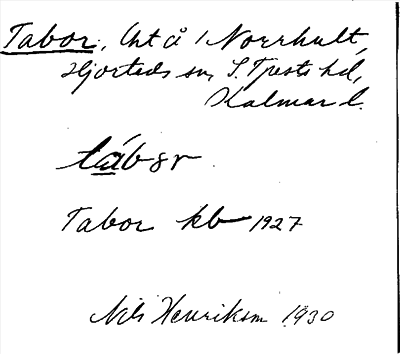 Tabor, Aht å 1 Norrhult,
Hjorteds sn, S. Tjusts hd,
Kalmar l.
tábər
Tabor kb 1927
Nils Henrikson 1930